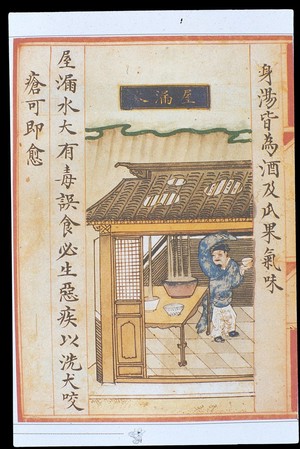 身湯皆為酒及瓜果氣味
屋漏水
屋漏水大有毒誤食必生惡疾以洗犬咬
瘡可即愈